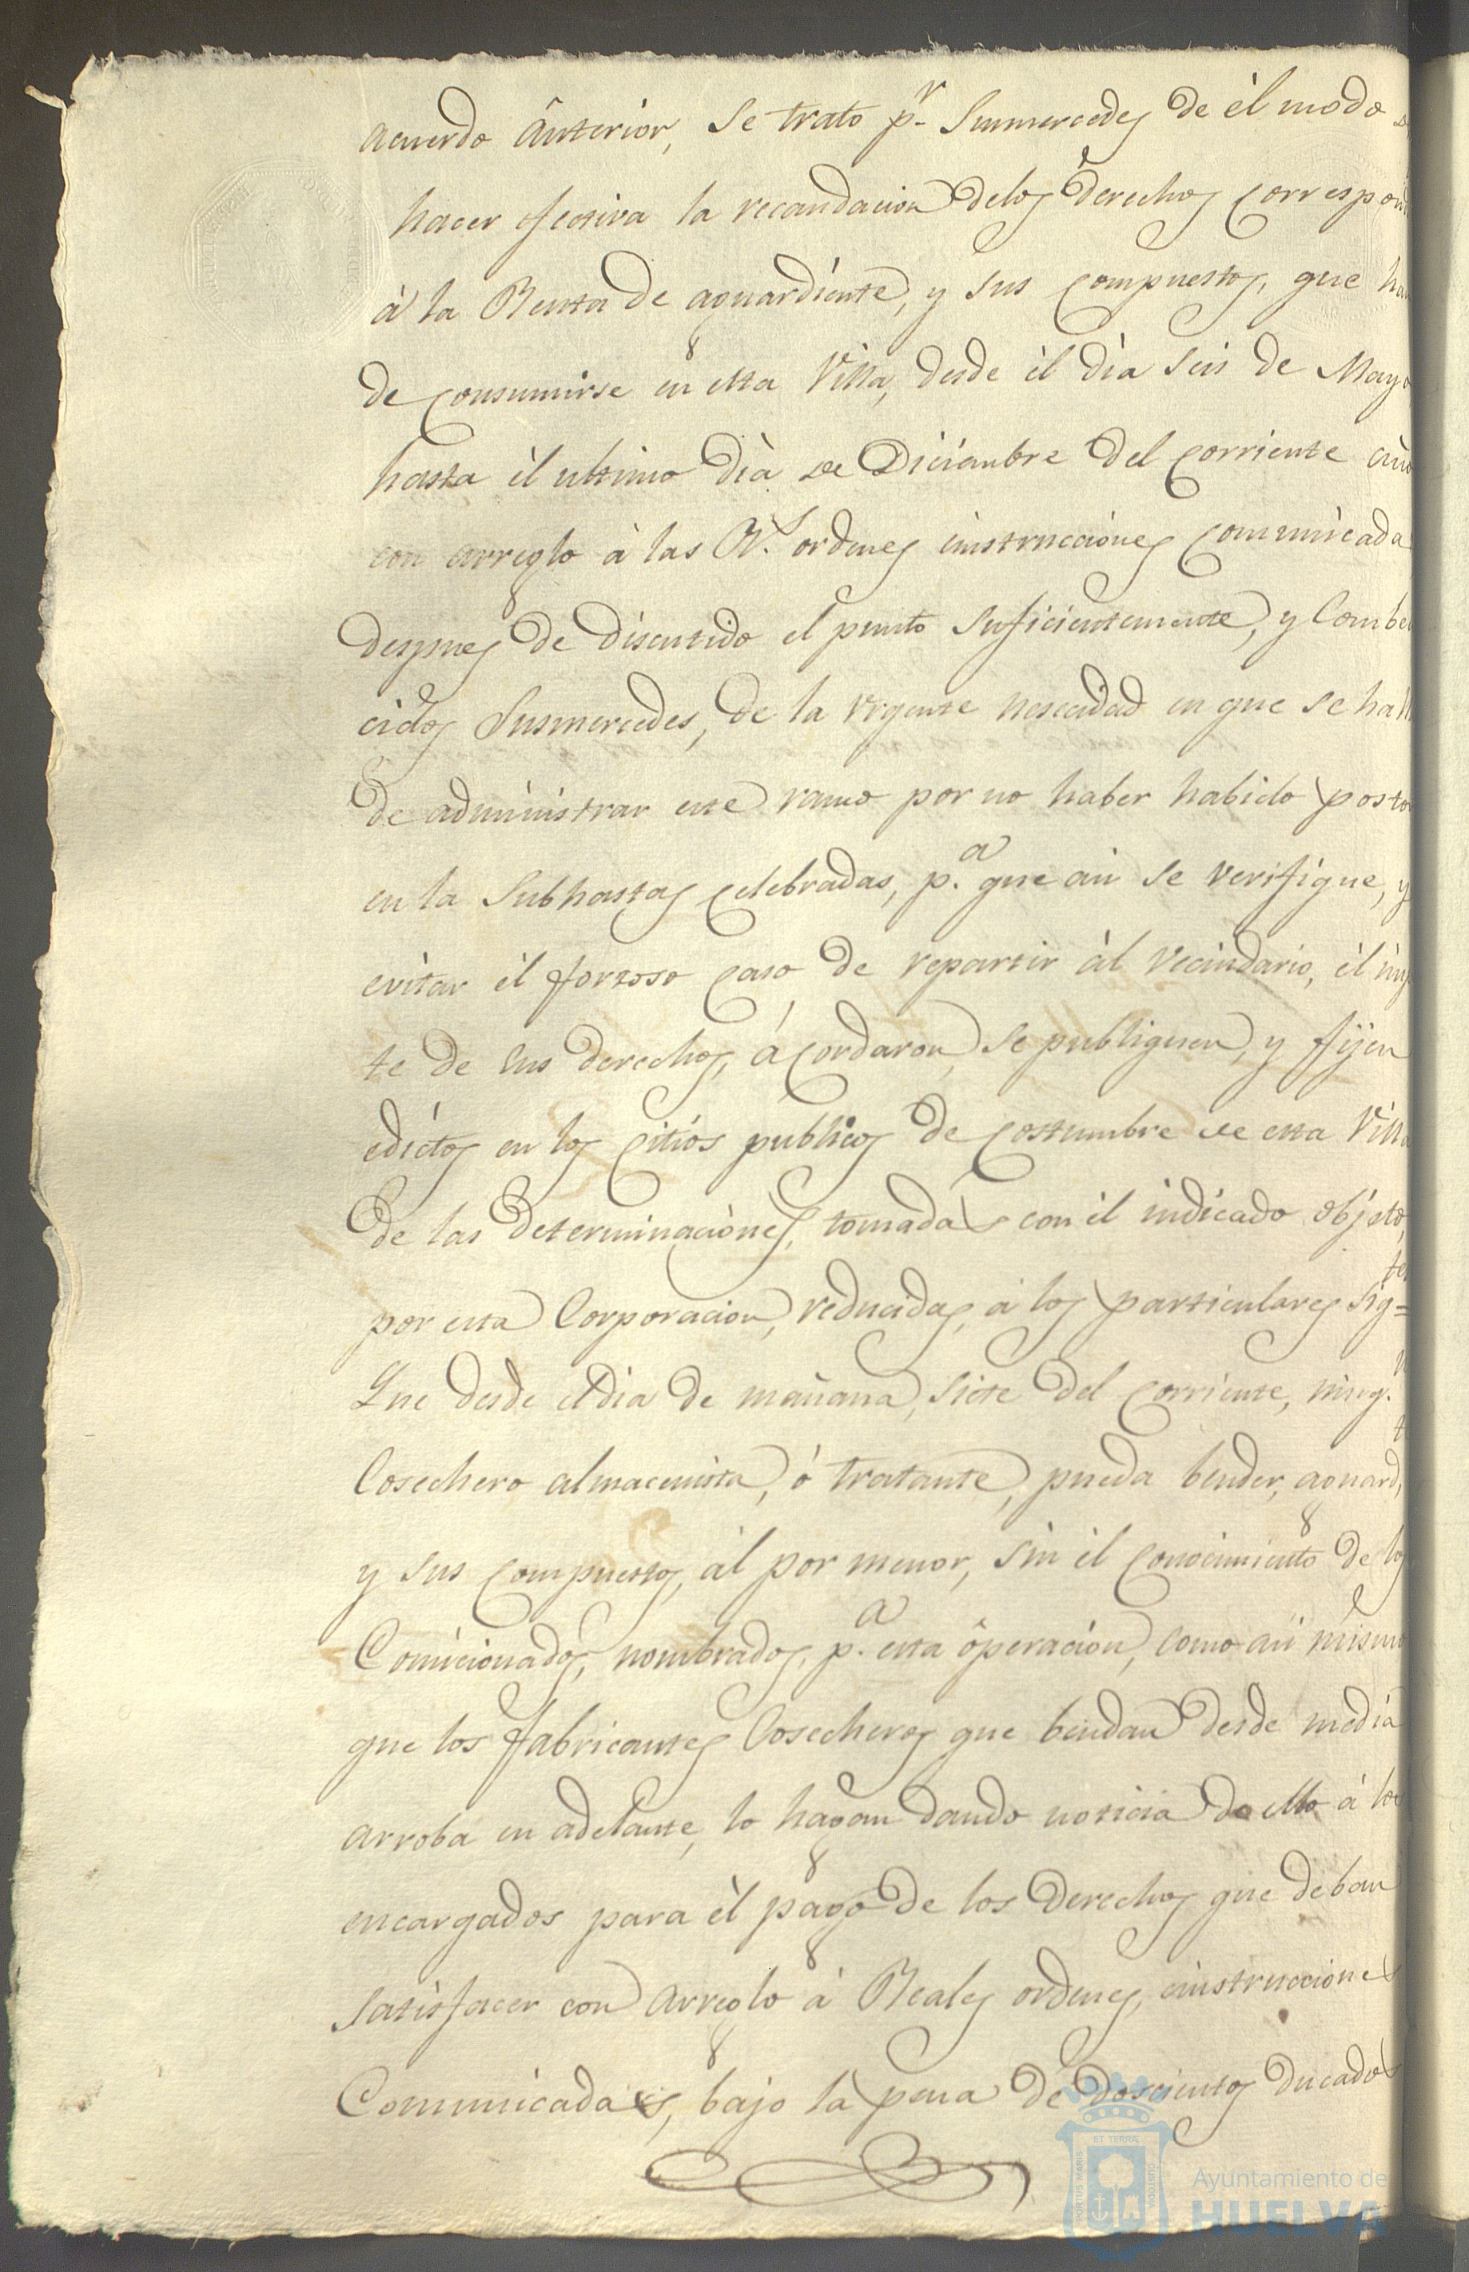 acuerdo ânterior, se trato p.r Susmercedes de él modo de
hacer efectiva la recaudacion delos derechos correspond
à la Renta de aguardiente, y sus compuestos, que han
de consumirse en esta Villa, desde él dia seis de Mayo
hasta él ultimo dia de Diciembre del corriente año
con arreglo à las R.s ordenes éinstrucciones comunicada
despues de discutido el punto suficientemente, y Combe
cidos Susmercedes, de la urgente neseidad en que se hall
de administrar este ramo por no haber habido posto
en la Subhastas celebradas, p.a que asi se verifique, y
evitar él forzoso caso de repartir àl Vecindario, él
te de sus derechos, ácordaron, se publiquen, y fijen
edictos en los citios publicos de costumbre de esta Villa
de las determinaciònes, tomadas con él indicado objeto,
por esta Corporacion, reducidas, á los particulares sig=tes
Que desde eldia de mañana, siete del corriente, ning.n
Cosechero almacenista, ó tratante, pueda bender, aguard.te
y sus compuestos, ál por menor, sin él conocimiento de los
Comicionados, nombrados, p.a esta ôperación, como asi mismo
que los fabricantes Cosecheros que bendan desde media
arroba en adelante, lo hagan dando noticia de ello á los
encargados para él pago de los derechos que deban
satisfacer con arreglo à Reales ordenes, éinstrucciones
Comunicadas, bajo la pena de doscientos ducados
PORTUS MARIS ET TERRAE CUSTODIA
Ayuntamiento de
HUELVA